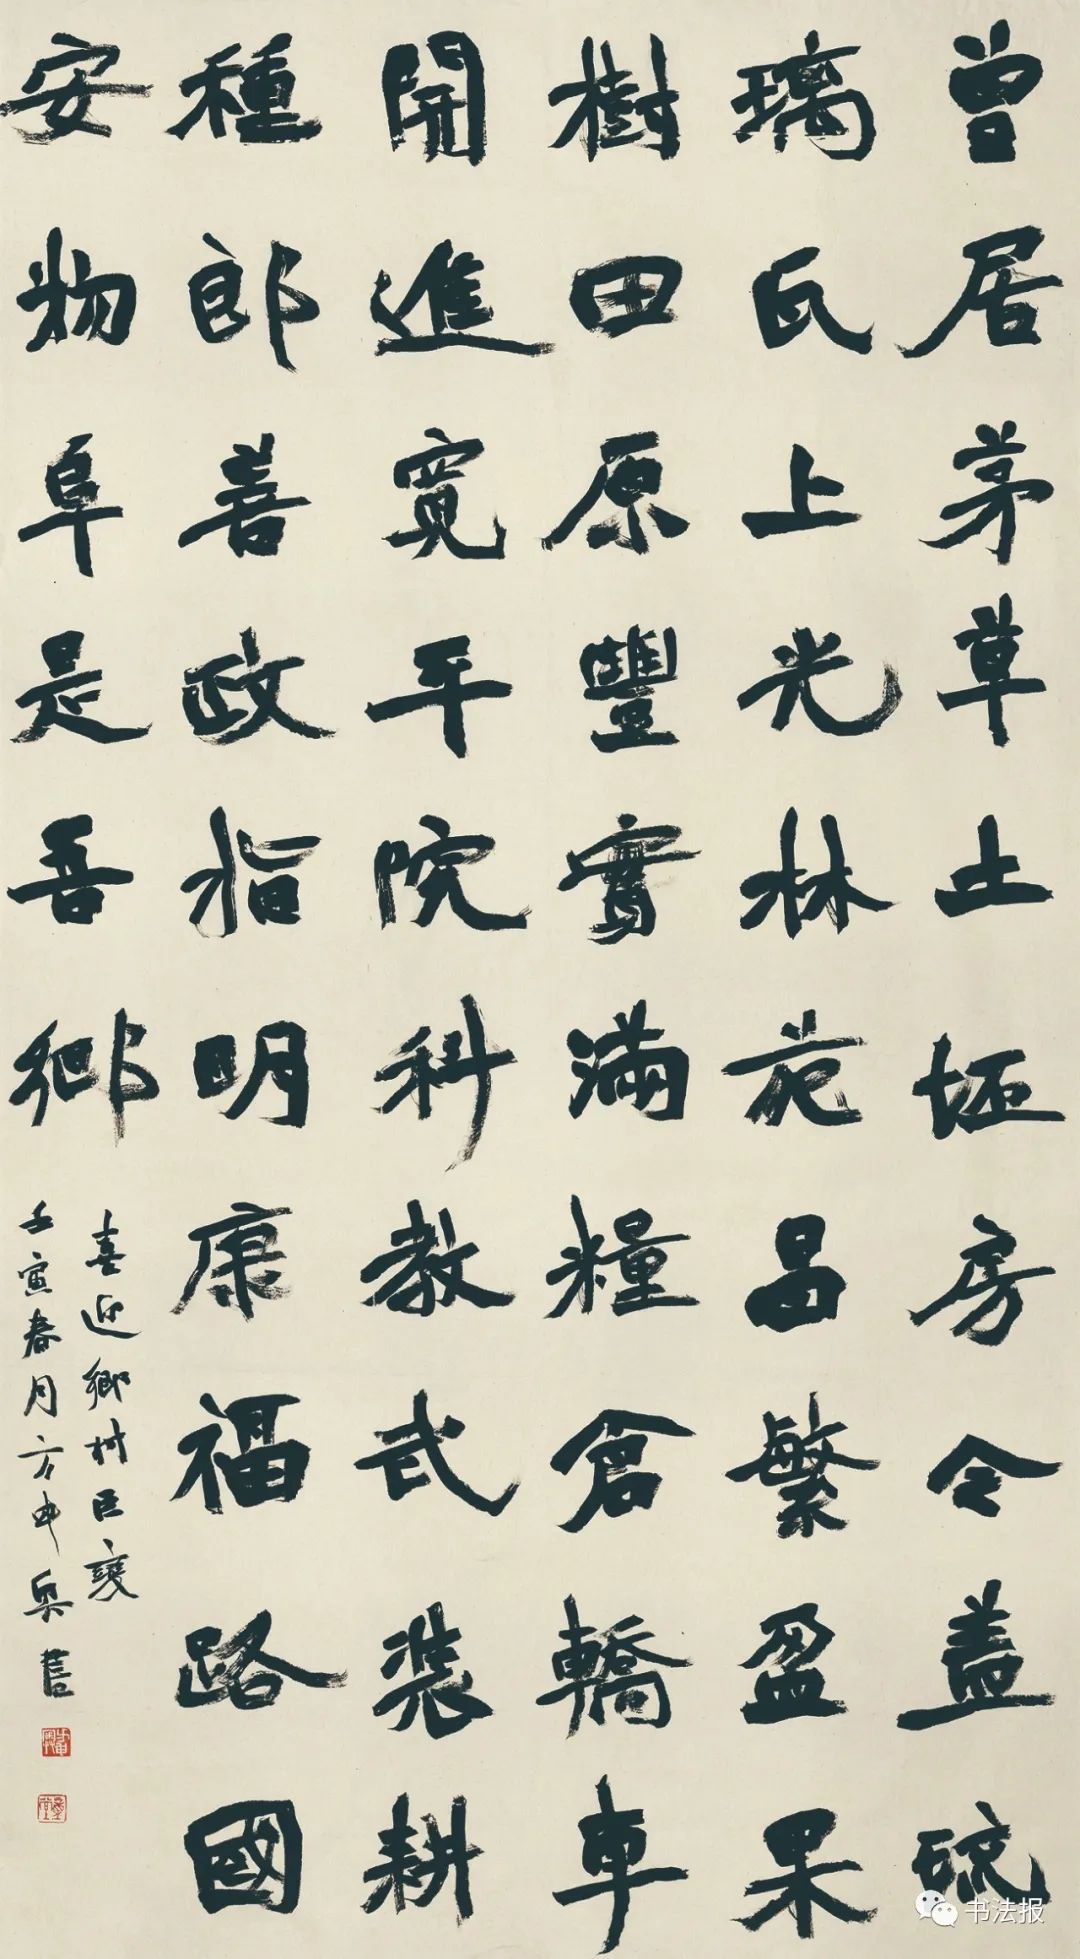 曾居茅草土坯房今盖硫
璃瓦上光林苑昌繁盈果
樹田原豐實滿糧倉轎車
開進寬平院科教武裝耕
種郎善政指明康福路國
安物阜是吾鄉
喜迎鄉村巨變
壬寅春月方申
书法报